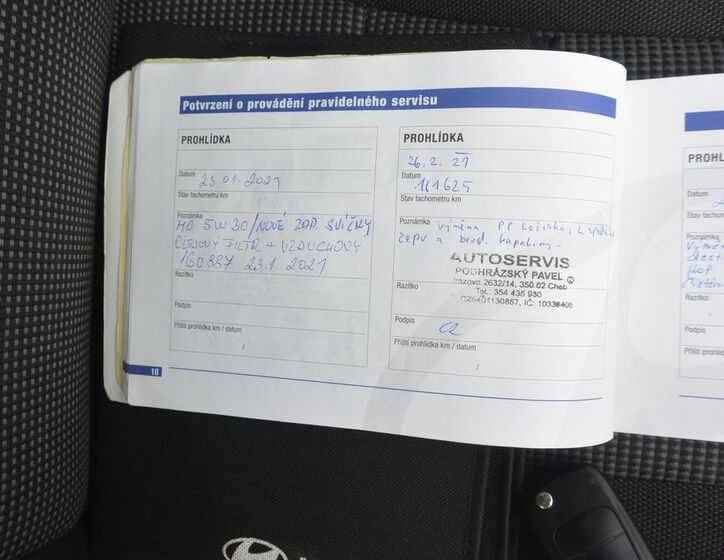 Potvrzení o provádění pravidelného servisu
PROHLÍDKA
Datum 23.01.2021
Stav tachometru km
Poznámka
MO 5W30/NOVÉ ZAP. SVÍČKY
OLEJOVÝ FILTR + VZDUCHOVÝ
160887 23.1.2021
Razítko
Podpis
Příští prohlídka km / datum
/
18
PROHLÍDKA
26.2.21
Datum
161625
Stav tachometru km
Poznámka výměna PP Ložiska, L
čepu a brzd. kapaliny.
AUTOSERVIS
PODHRÁZSKÝ PAVEL 2
2632/14, 350 02 Cheb
Tel.: 354 435 930
Razítko
Podpis
Příští prohlídka km / datum
/
PROHL
Datum
Stav tachom
Poznámka
Razítko
Podpis
Příští prohlíd